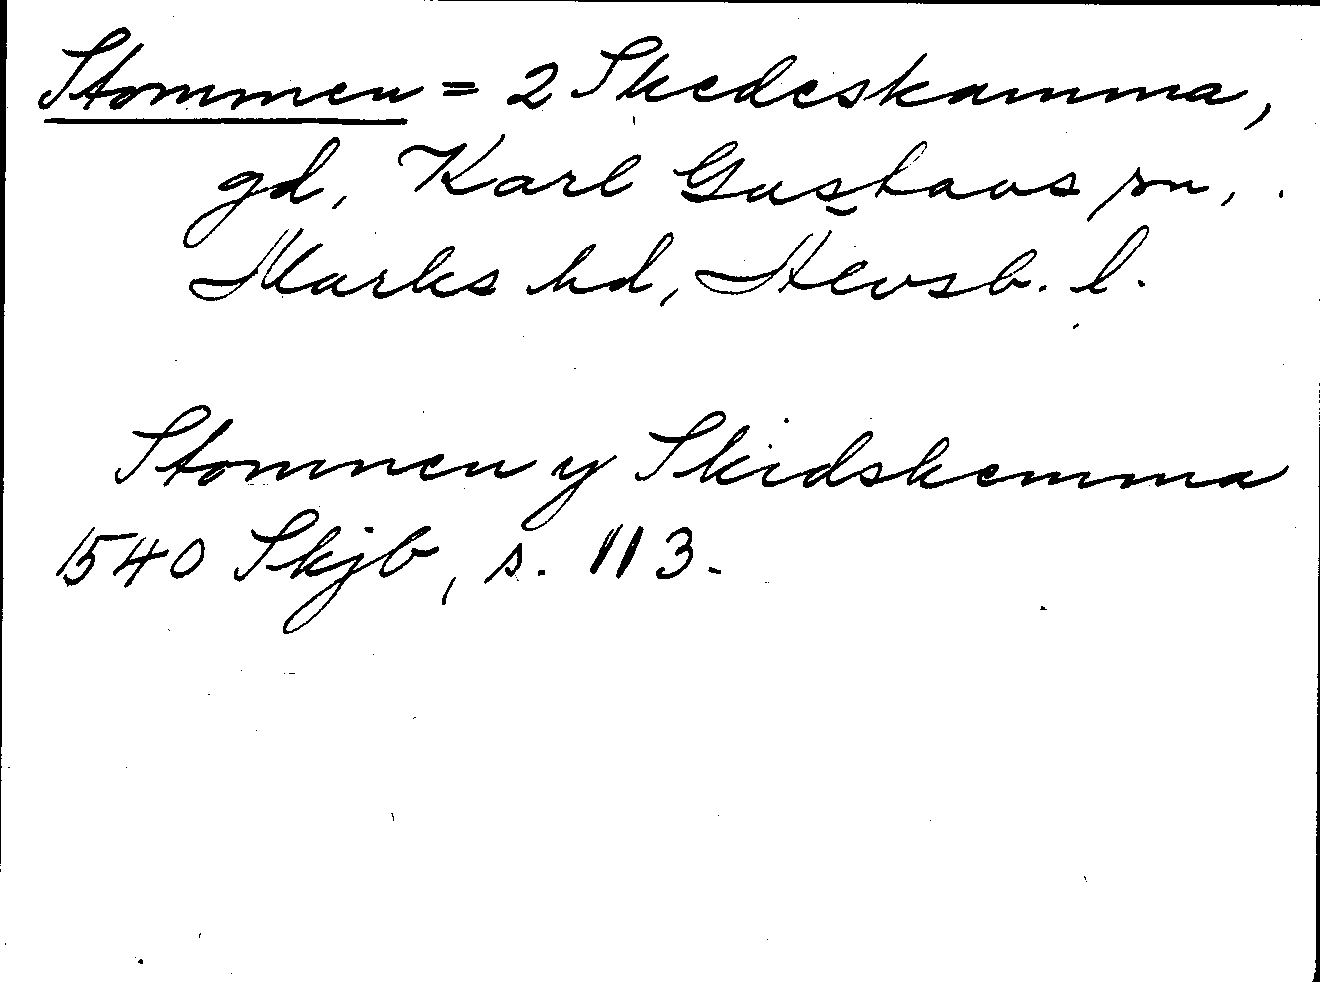 Stommen = 2 Skedeskamma,
gd, Karl Gustavs sn,
Marks hd, Älvsb. l.
Stommen y Skidskemma
1540 Skjb, s. 113.